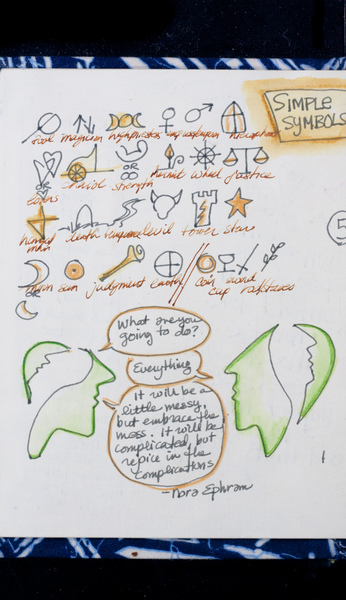 SIMPLE
SYMBOLS
fool magician highpriestess emperor hierophant
OR
lovers chariot strength hermit wheel justice
hanged man death temperance devil tower star
moon sun judgment earth coin sword
OR
cup
5
What are you
going to do?
Everything
it will be a
little messy,
but embrace the
mess. it will be
complicated, but
rejoice in the
complications
-Nora Ephram